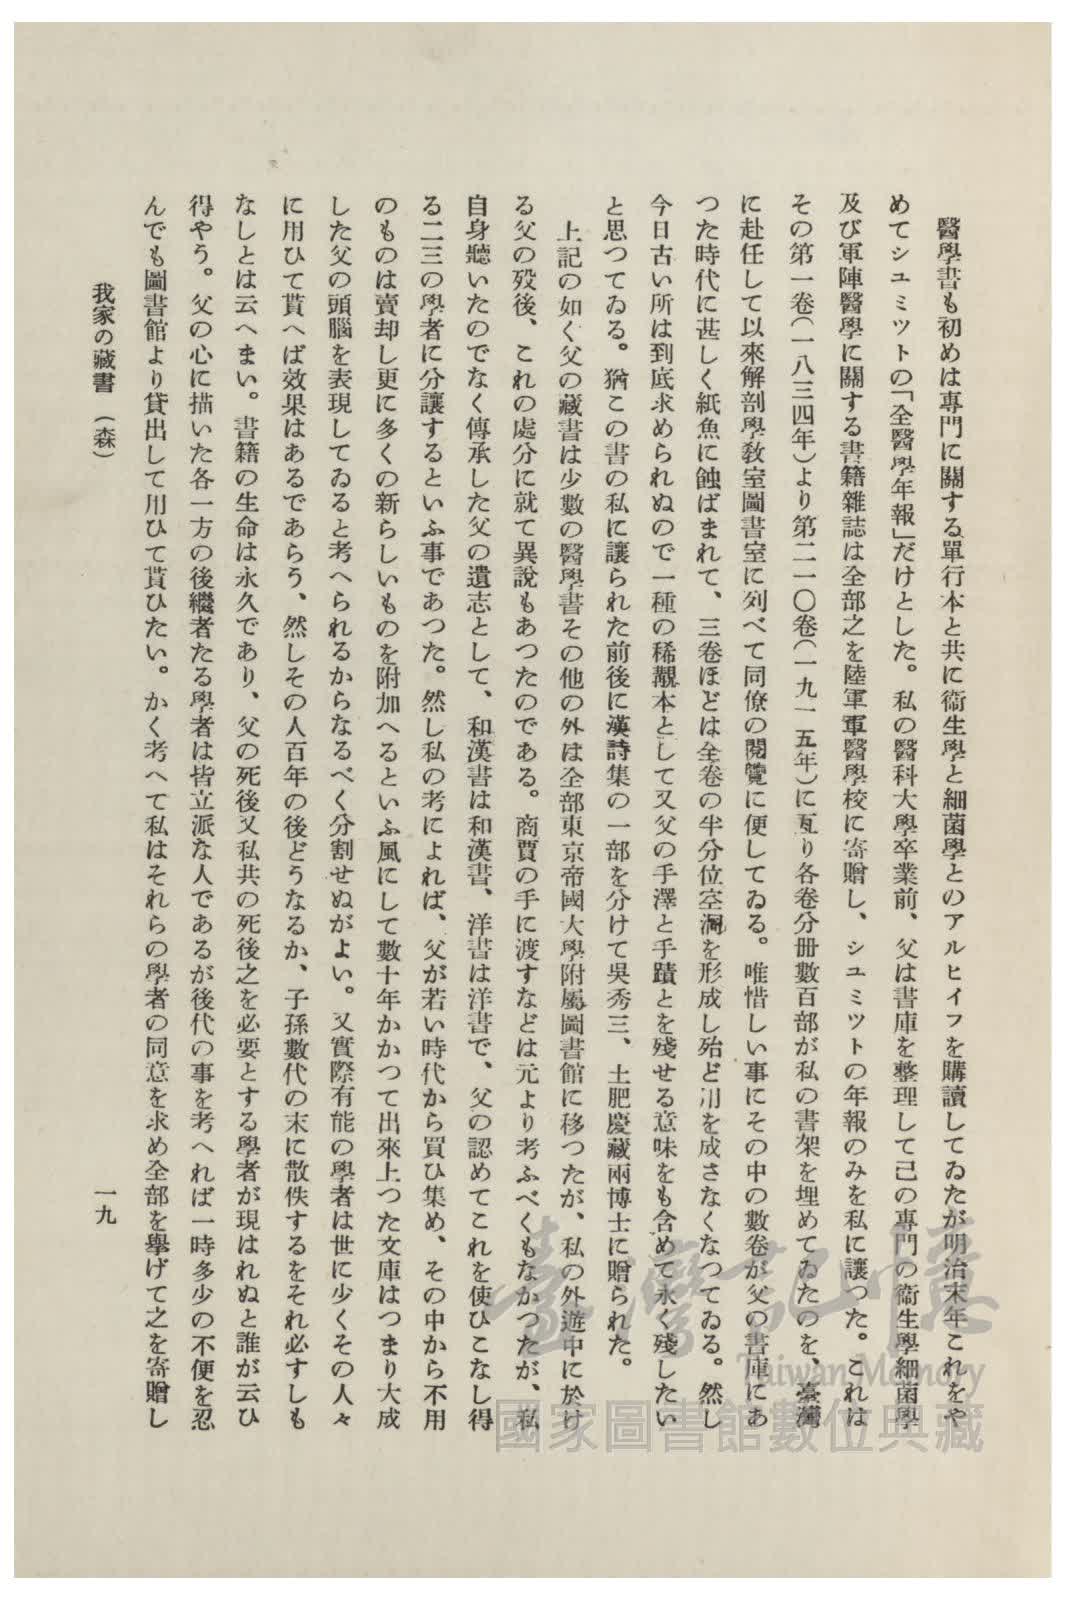 醫學書も初めは專門に關する單行本と共に衞生學と細菌學とのアルヒイフを購讀してゐたが明治末年これをや
めてシユミツトの「全醫學年報」だけとした。私の醫科大學卒業前、父は書庫を整理して己の專門の衞生學細菌學
及び軍陣醫學に關する書籍雜誌は全部之を陸軍軍醫學校に寄贈し、シユミツトの年報のみを私に讓つた。これは
その第一卷（一八三四年）より第二一〇卷（一九一五年）に亙り各卷分册數百部が私の書架を埋めてゐたのを、臺灣
に赴任して以來解剖學敎室圖書室に列べて同僚の閱覽に便してゐる。唯惜しい事にその中の數卷が父の書庫にあ
つた時代に甚しく紙魚に蝕ばまれて、三卷ほどは全卷の半分位空洞を形成し殆ど用を成さなくなつてゐる。然し
今日古い所は到底求められぬので一種の稀覯本として又父の手澤と手蹟とを殘せる意味をも含めて永く殘したい
と思つてゐる。猶この書の私に讓られた前後に漢詩集の一部を分けて吳秀三、土肥慶藏兩博士に贈られた。
上記の如く父の藏書は少數の醫學書その他の外は全部東京帝國大學附屬圖書館に移つたが、私の外遊中に於け
る父の歿後、これの處分に就て異說もあつたのである。商賈の手に渡すなどは元より考ふべくもなかつたが、私
自身聽いたのでなく傳承した父の遺志として、和漢書は和漢書、洋書は洋書で、父の認めてこれを使ひこなし得
る二三の學者に分讓するといふ事であつた。然し私の考によれば、父が若い時代から買ひ集め、その中から不用
のものは賣却し更に多くの新らしいものを附加へるといふ風にして數十年かかつて出來上つた文庫はつまり大成
した父の頭腦を表現してゐると考へられるからなるべく分割せぬがよい。又實際有能の學者は世に少くその人々
に用ひて貰へば效果はあるであらう、然しその人百年の後どうなるか、子孫數代の末に散佚するをそれ必すしも
なしとは云へまい。書籍の生命は永久であり、父の死後又私共の死後之を必要とする學者が現はれぬと誰が云ひ
得やう。父の心に描いた各一方の後繼者たる學者は皆立派な人であるが後代の事を考へれば一時多少の不便を忍
んでも圖書館より貸出して用ひて貰ひたい。かく考へて私はそれらの學者の同意を求め全部を擧げて之を寄贈し
我家の藏書（森）
一九
臺灣記憶
Taiwan Memory
國家圖書館數位典藏